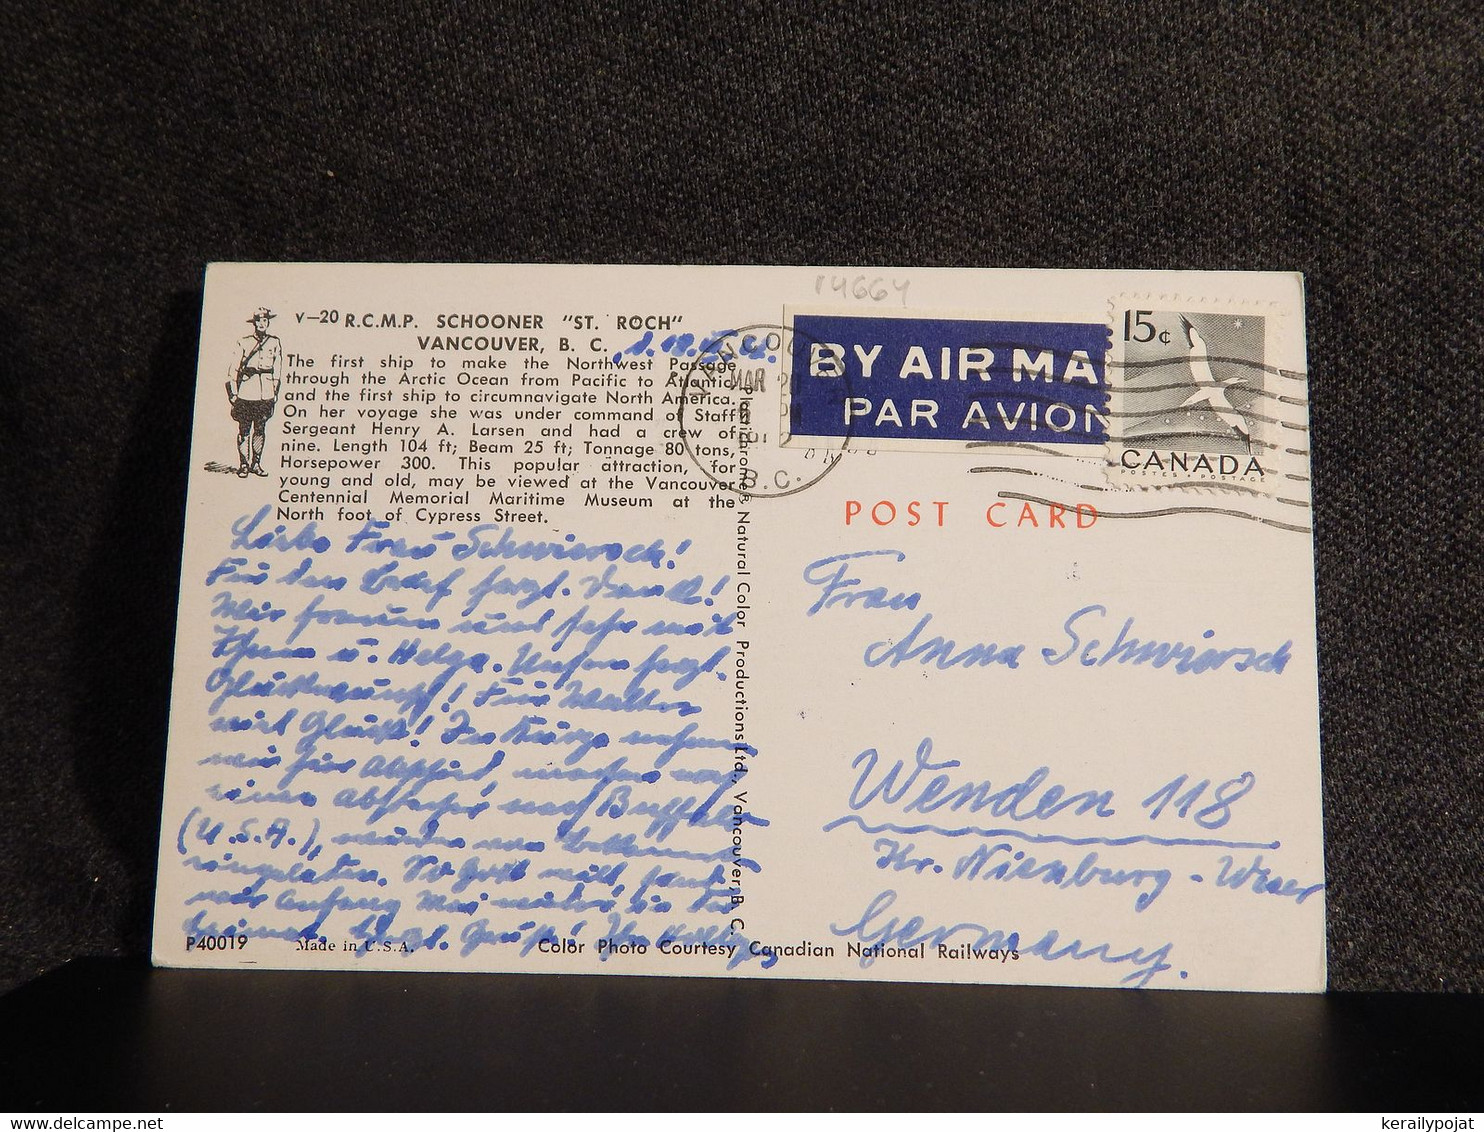 14664
V-20 R.C.M.P. SCHOONER "ST. ROCH"
VANCOUVER, B. C.
The first ship to make the Northwest Passage
through the Arctic Ocean from Pacific to Atlantic
and the first ship to circumnavigate North America.
On her voyage she was under command of Staff
Sergeant Henry A. Larsen and had a crew of
nine. Length 104 ft; Beam 25 ft; Tonnage 80 tons,
Horsepower 300. This popular attraction, for
young and old, may be viewed at the Vancouver
Centennial Memorial Maritime Museum at the
North foot of Cypress Street.
Liebe Frau Schwiersch!
Für den Brief herzl. Dank!
Wir freuen uns sehr mit
Ihnen u. Helga. Unsere herzl.
Glückwünsche! Für Walter
viel Glück! In Kürze nehmen
wir hier Abschied, machen noch
einen Abstecher nach Buffalo
(U.S.A.), wurden von
eingeladen. So Gott will, sind
wir Anfang Mai wieder in der
Heimat. Herzl. Grüße! Ihre
P40019 Made in U.S.A. Color Photo Courtesy Canadian National Railways
Plastichrome® Natural Color Productions Ltd., Vancouver, B. C.
VANCOUVER
MAR
B.C.
BY AIR MA
PAR AVION
15¢
CANADA
POSTES POSTAGE
POST CARD
Frau
Anna Schwiersch
Wenden 118
Kr. Nienburg-Weser
Germany.
kerailypojat